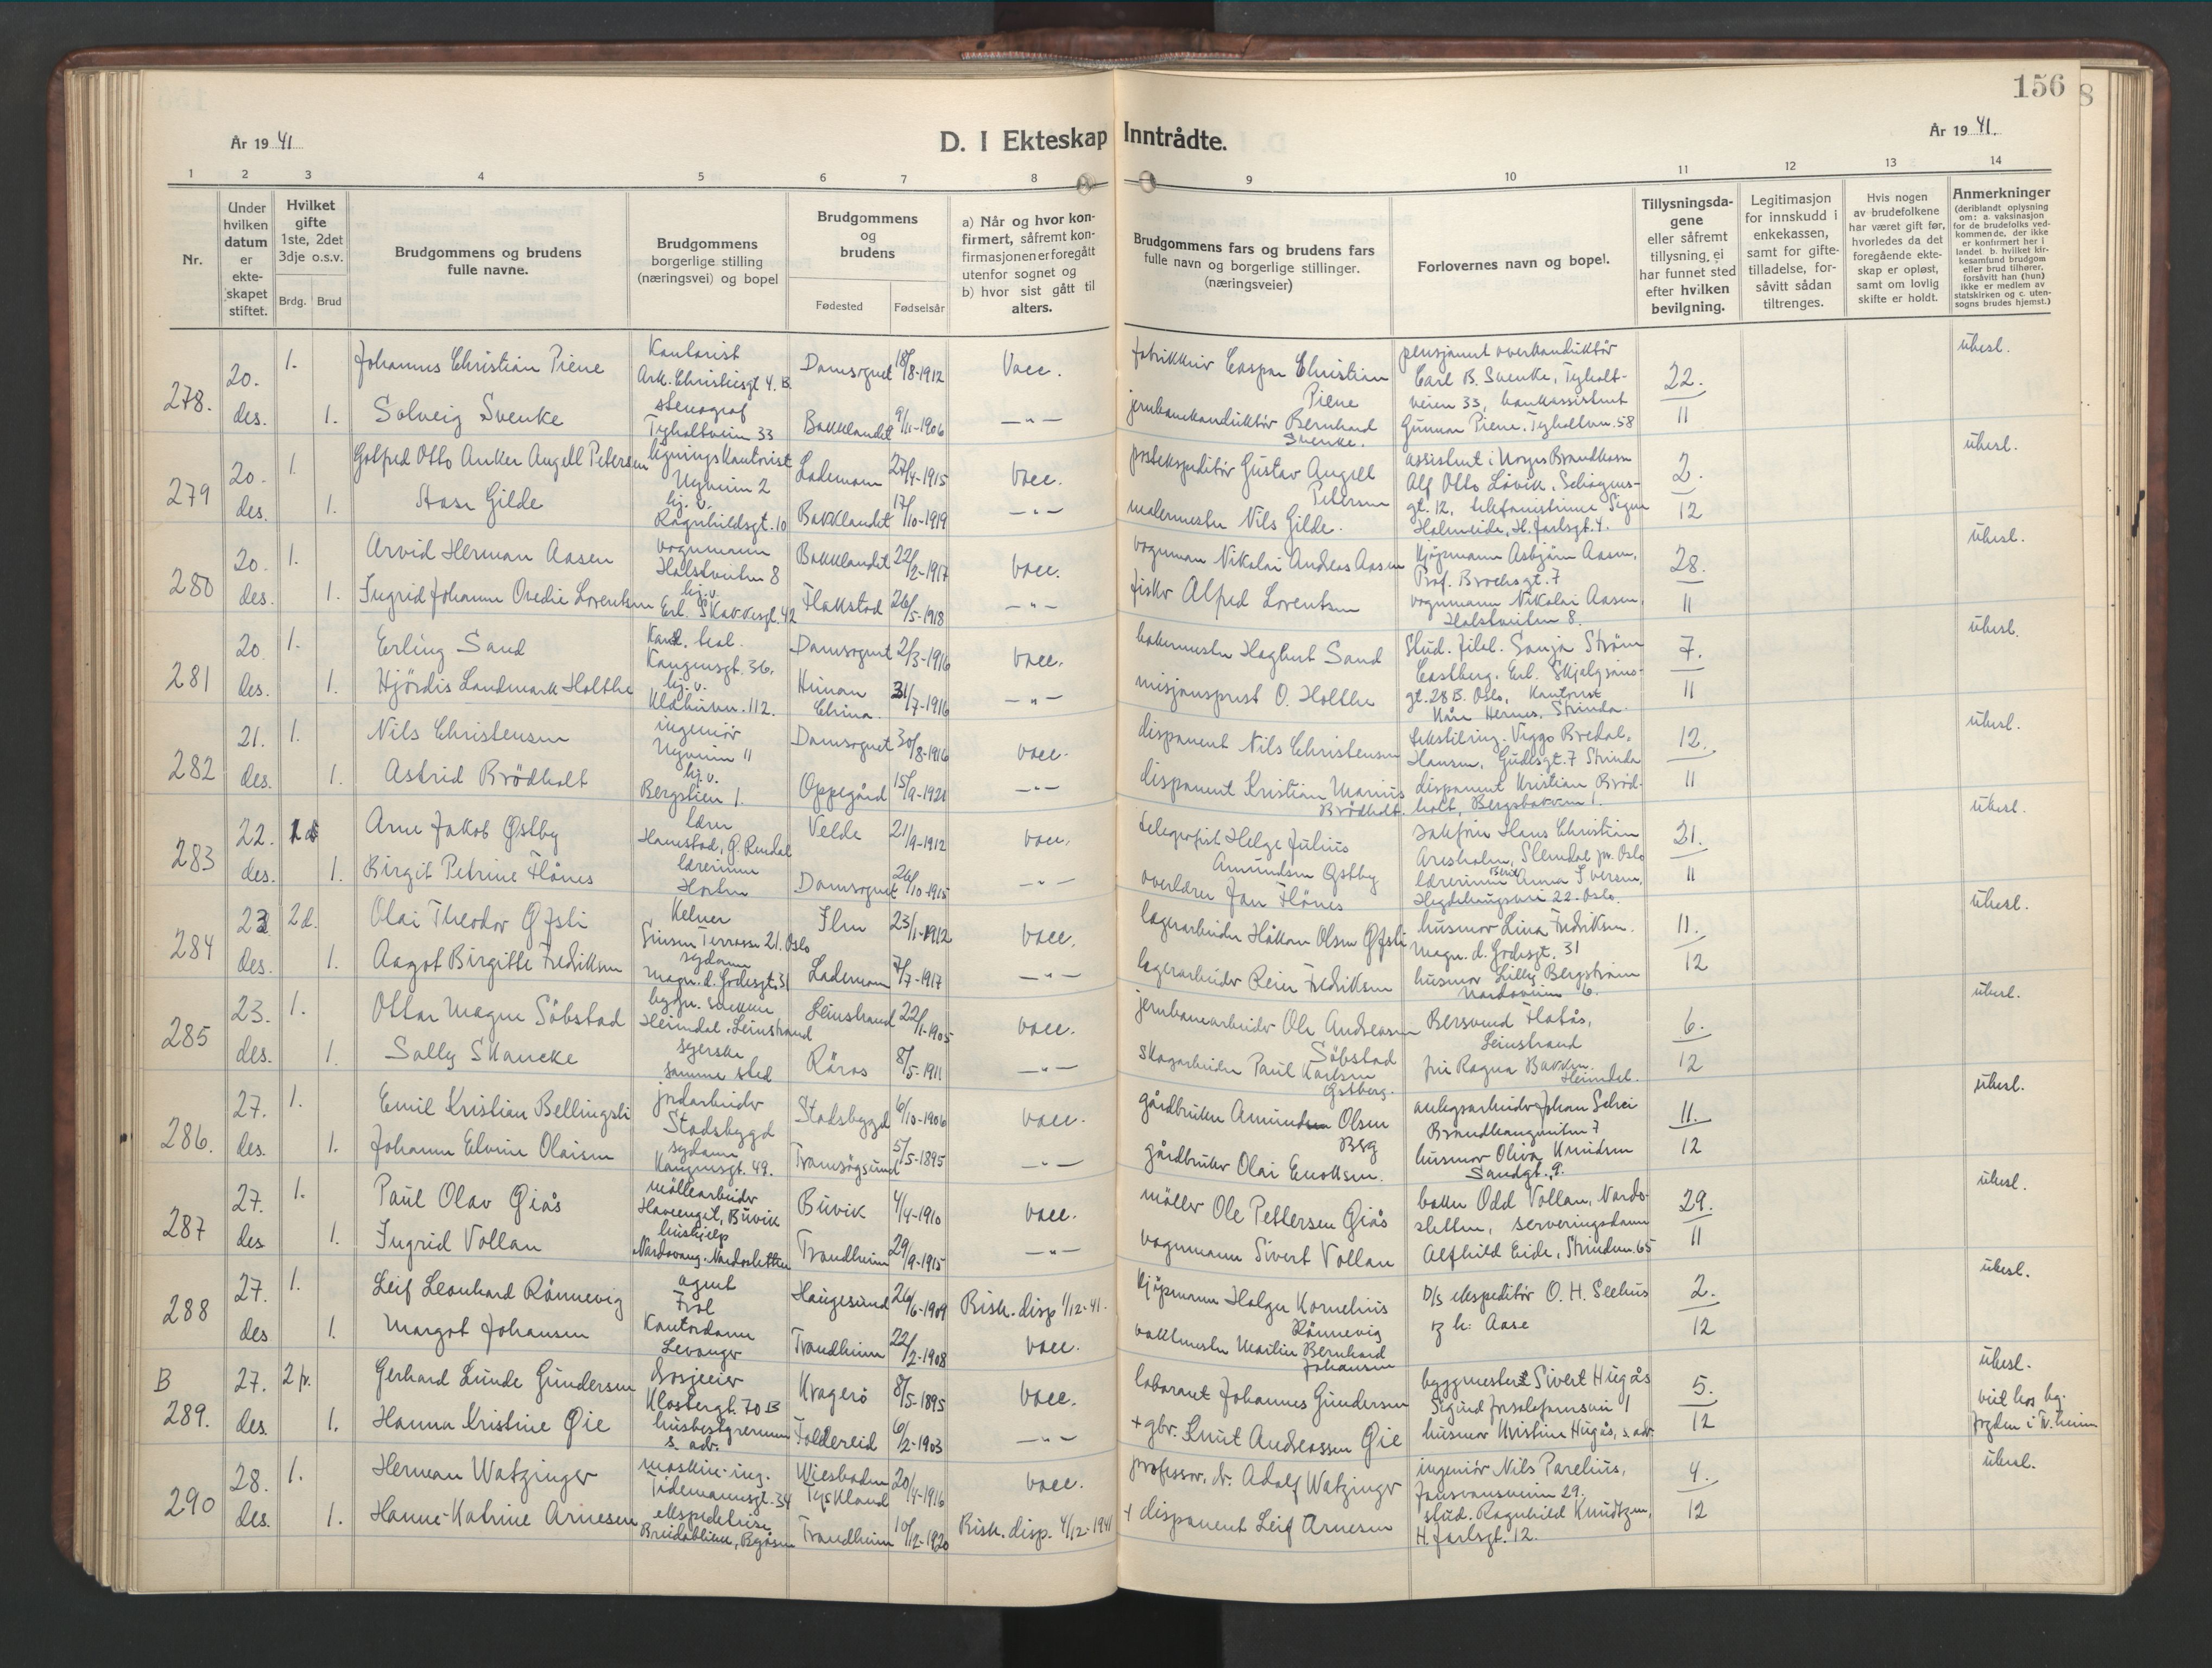 156
År 1941
D. I Ekteskap Inntrådte.
År 1941.
1 2 3 4 5 6 7 8 9 10 11 12 13 14
Nr.
Under hvilken datum er ekteskapet stiftet.
Hvilket gifte 1ste, 2det 3dje o.s.v.
Brdg. Brud
Brudgommens og brudens fulle navne.
Brudgommens borgerlige stilling (næringsvei) og bopel
Brudgommens og brudens
Fødested Fødselsår
a) Når og hvor konfirmert, såfremt konfirmasjonen er foregått utenfor sognet og b) hvor sist gått til alters.
Brudgommens fars og brudens fars fulle navn og borgerlige stillinger. (næringsveier)
Forlovernes navn og bopel.
Tillysningsdagene eller såfremt tillysning ei har funnet sted efter hvilken bevilgning.
Legitimasjon for innskudd i enkekassen, samt for giftetilladelse, forsåvitt sådan tiltrenges.
Hvis nogen av brudefolkene har været gift før, hvorledes da det foregående ekteskap er opløst, samt om lovlig skifte er holdt.
Anmerkninger (deriblandt oplysning om: a. vaksinasjon for de brudefolks vedkommende, der ikke er konfirmert her i landet. b. hvilket kirkesamfund brudgom eller brud tilhører, forsåvitt han (hun) ikke er medlem av statskirken og c. utensogns brudes hjemst.)
278. 20. des. 1. Johannes Christian Piene Kontorist Ark. Christiesgt 4. B Domsognet 18/8-1912 Vacc. fabrikkeier Caspar Christian Piene pensjonert overkonduktör Carl B. Svenke, Tyholtveien 33, bankassistent Gunnar Piene, Tyholtvn. 58 22. 11 ubesl.
1. Solveig Svenke stenograf Tyholtveien 33 Bakklandet 9/11-1906 —"— jernbanekonduktör Bernhard Svenke.
279 20. des. 1. Gotfred Otto Anker Angell Petersen ligningskontorist Nyveien 2 Lademoen 27/4-1915 Vacc. postekspeditör Gustav Angell Petersen assistent i Norges Brandkasse Alf Otto Lövik, gt. 12, telefonistinne Signe Holmeide, H. Jarlsgt. 4. 2. 12 ubesl.
1. Aase Gilde hj. v. Ragnhildsgt. 10 Bakklandet 17/10-1919 —"— malermester Nils Gilde.
280 20. des. 1. Arvid Herman Aasen vognmann Halstveiten 8 Bakklandet 22/2-1917 Vacc. vognman Nikolai Andreas Aasen Kjöpmann Asbjörn Aasen, Prof. Brochsgt. 7 vognmann Nikolai Aasen, Halstveiten 8. 28. 11 ubesl.
1. Ingrid Johanne Ovedie Lorentsen hj. v. Erl. Skakkesgt. 42 Flakstad 26/5-1918 —"— fisker Alfred Lorentsen
281 20 des. 1. Erling Sand Kand. teol. Kongensgt. 36. Domsognet 2/3-1916 Vacc. bakermester Hagbert Sand Stud. filol. Sonja Ström Eastberg, Erl. Skjalgsons gt. 28 B. Oslo, Kontorist Kåre Hernes, Strinda. 7. 11 ubesl.
1. Hjördis Landmark Holthe hj. v. Klæbuvn. 112. Hunan China. 31/7-1916 —"— misjonsprest O. Holthe
282 21. des. 1. Nils Christensen ingeniör Nyveien 11 Domsognet 30/8-1916 vacc. disponent Nils Christensen tekstiling. Viggo Bredal Hansen, Gudesgt. 7 Strinda disponent Kristian Brödholt, Bergsbakken 1. 12. 11 ubesl.
1. Astrid Brödholt hj. v. Bergslien 1. Oppegård 15/9-1921 —"— disponent Kristian Marius Brödholt
283 22. des. Arne Jakob Østby lærer Hanestad, Ö. Rendal Velde 21/9-1912 vacc. telegrafist Helge Julius Amundsen Østby Hans Christian Aresholm, Slemdal pr. Oslo lærerinne Berit Anna Iversen, Hegdehaugsvei 22. Oslo. 21. 11 ubesl.
1. Birgit Petrine Flönes lærerinne Horten Domsognet 26/10-1915 —"— overlærer Jon Flönes
284 23 des. 2d. Olai Theodor Øfsti Kelner Terrasse 21. Oslo Ilen 23/1-1912 vacc. lagerarbeider Håkon Olsen Øfsti husmor Lina Fredriksen. Magn. d. Godesgt. 31 husmor Lilly Bergström Nardoveien 6. 11. 12 ubesl.
1. Aagot Birgitte Fredriksen sydame Magn. d. Godesgt. 31 Lademoen 7/7-1917 —"— lagerarbeider Reier Fredriksen
285 23. des. 1. Ottar Magne Söbstad bygn. snekker Heimdal, Leinstrand Leinstrand 22/1-1905 vacc. jernbanearbeider Ole Andreasen Söbstad Bersvend Flatås, Leinstrand fru Ragna Bakken Heimdal. 6. 12 ubesl.
1. Sally Skancke syerske samme sted Röros 8/5-1911 —"— skogarbeider Paul Karlsen Östberg.
286. 27. des. 1. Emil Kristian Bellingsli jordarbeider Stadsbygd Stadsbygd 6/10-1906 vacc. gårdbruker Amund Olsen Berg anlegsarbeider Johan Schei Brandhaugveiten 7 husmor Oliva Knudsen Sandgt. 9. 11. 12 ubesl.
1. Johanne Elvine Olaisen sydame Kongensgt. 49. Tromsösund 5/5-1895 —"— gårdbruker Olai Enoksen.
287 27. des 1. Paul Olav Øiås möllearbeider Havenget, Buvik Buvik 4/4-1910 vacc. möller Ole Pettersen Øiås baker Odd Vollan, Nardosletten, serveringsdame Alfhild Eide, Strindvn. 65 29. 11 ubesl.
1. Ingrid Vollan hushjelp Nardovang. Nardosletten Trondheim 29/9-1915 —"— vognmann Sivert Vollan
288 27. des 1. Leif Leonhard Rönnevig agent Frol Haugesund 26/6-1909 Bisk. disp 1/12-41. kjöpmann Holger Kornelius Rönnevig D/s ekspeditör O. H. Seehus Aase 2. 12 ubesl.
1. Margot Johansen Kontordame Levanger Trondheim 22/2-1908 vacc. vaktmester Martin Bernhard Johansen
B 289. 27. des 2 Gerhard Lunde Gundersen drosjeeier Klostergt. 70 B Kragerö 8/5-1895 vacc. laborant Johannes Gundersen byggmester Sivert Hugås Sigurd Jorsalefarersvei 1 husmor Kristine Hugås, s. adr. 5. 12 ubesl. viet hos by- i Tr. heim
1. Hanna Kristine Øie husbestyrerinne s. adr. Foldereid 6/2-1903 —"— + gbr. Knut Andreassen Øie
290 28. des. 1. Herman Watzinger maskin-ing. Tidemannsgt. 34 Wiesbaden Tyskland 20/4-1916 vacc. professor, dr. Adolf Watzinger ingeniör Nils Parelius, Jonsvansveien 29. stud. Ragnhild Knudtzon, H. Jarlsgt. 12. 4. 12 ubesl.
1. Hanne-Katrine Arnesen ekspeditrise Breidablikk, Byåsen Trondheim 10/12-1920 Bisk. disp. 4/12-1941 + disponent Leif Arnesen